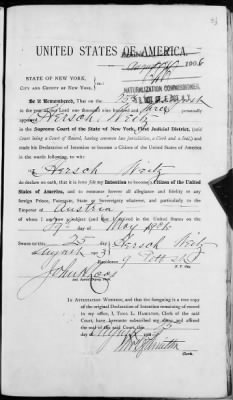 UNITED STATES OF AMERICA.
STATE OF NEW YORK,
CITY AND COUNTY OF NEW YORK,
NATURALIZATION COMMISSIONER,
Be it Remembered, That on the 25 day of August
in the year of our Lord one thousand nine hundred and three personally
appeared Hersch Weitz
in the Supreme Court of the State of New York, First Judicial District, (said
Court being a Court of Record, having common law jurisdiction, a Clerk and a Seal,) and
made his Declaration of Intention to become a Citizen of the United States of America
in the words following, to wit:
I, Hersch Weitz
do declare on oath, that it is bona fide my Intention to become a Citizen of the United
States of America, and to renounce forever all allegiance and fidelity to any
foreign Prince, Potentate, State or Sovereignty whatever, and particularly to the
Emperor of Austria
of whom I am now subject
day of May
Sworn this 25 day of Hersch Weitz
August 1903
Residence 9 Pitt St
N. Y. City
IN ATTESTATION WHEREOF, and that the foregoing is a true copy
of the original Declaration of Intention remaining of record
in my office, I, THOS. L. HAMILTON, Clerk of the said
Court, have hereunto subscribed my name and affixed
the seal of the said Court, this
day of August
Clerk.